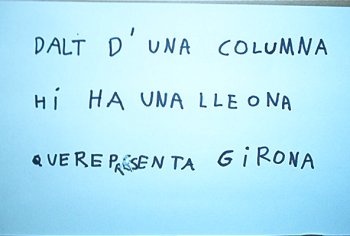 DALT D'UNA COLUMNA
Hi HA UNA LLEONA
QUEREPRESENTA GiRONA